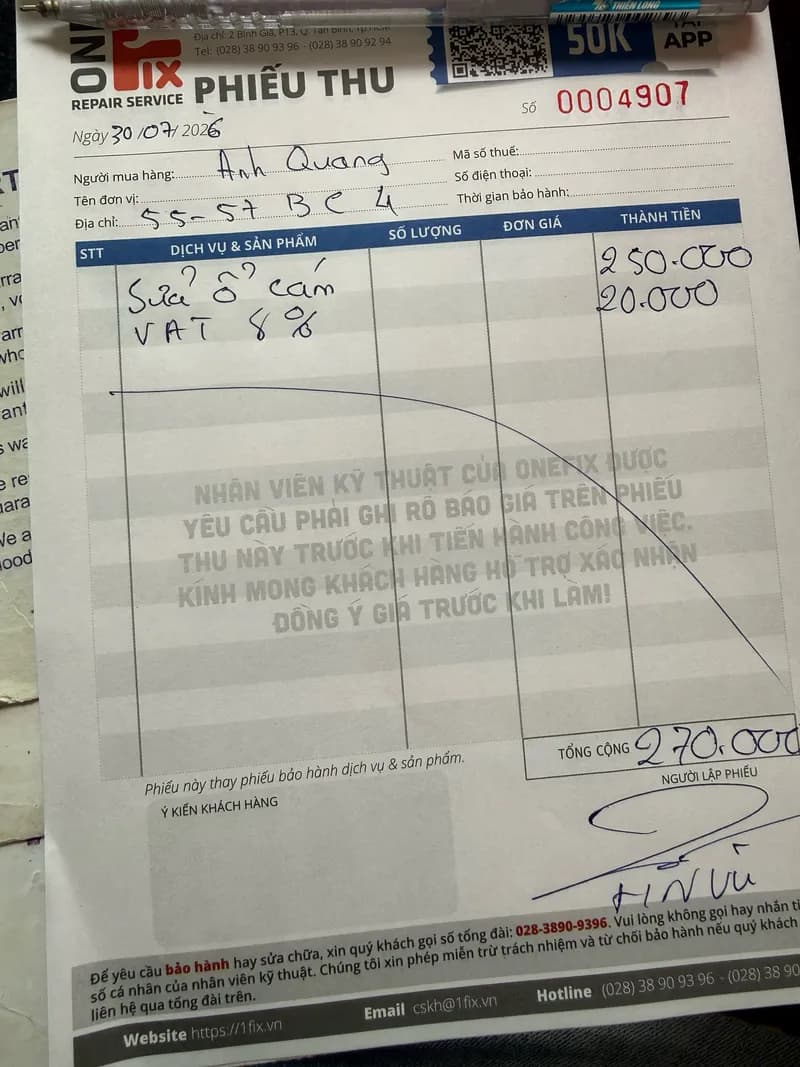 THIÊN LONG
ONE
FIX
REPAIR SERVICE
Địa chỉ: 2 Bình Giã, P13, Q. Tân Bình, Tp.HCM
Tel: (028) 38 90 93 96 - (028) 38 90 92 94
PHIẾU THU
50K
TẠI
APP
Số 0004907
Ngày 30/07/2026
Người mua hàng: Anh Quang
Tên đơn vị:
Địa chỉ: 55-57 BC 4
Mã số thuế:
Số điện thoại:
Thời gian bảo hành:
STT DỊCH VỤ & SẢN PHẨM SỐ LƯỢNG ĐƠN GIÁ THÀNH TIỀN
Sửa ổ cắm 250.000
VAT 8% 20.000
NHÂN VIÊN KỸ THUẬT CỦA ONEFIX ĐƯỢC
YÊU CẦU PHẢI GHI RÕ BÁO GIÁ TRÊN PHIẾU
THU NÀY TRƯỚC KHI TIẾN HÀNH CÔNG VIỆC.
KÍNH MONG KHÁCH HÀNG HỖ TRỢ XÁC NHẬN
ĐỒNG Ý GIÁ TRƯỚC KHI LÀM!
TỔNG CỘNG 270.000
Phiếu này thay phiếu bảo hành dịch vụ & sản phẩm.
NGƯỜI LẬP PHIẾU
Ý KIẾN KHÁCH HÀNG
TÍN VŨ
Để yêu cầu bảo hành hay sửa chữa, xin quý khách gọi số tổng đài: 028-3890-9396. Vui lòng không gọi hay nhắn ti
số cá nhân của nhân viên kỹ thuật. Chúng tôi xin phép miễn trừ trách nhiệm và từ chối bảo hành nếu quý khách
liên hệ qua tổng đài trên.
Website https://1fix.vn Email cskh@1fix.vn Hotline (028) 38 90 93 96 - (028) 38 90